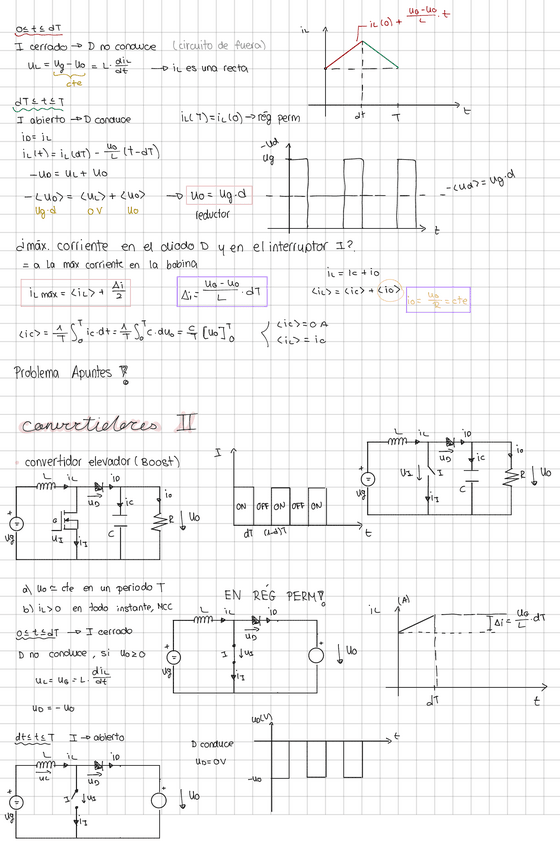 0≤t≤dT
I cerrado → D no conduce (circuito de fuera)
uL = ug-uo = L· diL/dt → iL es una recta
cte
iL
iL(0) + ug-uo/L · t
dt T t
dT≤t≤T
I abierto → D conduce
iL(T)=iL(0) → rég perm
iD= iL
iL(t)= iL(dT) - uo/L (t-dT)
-uD= uL + uo
-<uD> = <uL> + <uo> → uo= ug·d
ug·d 0V uo
reductor
-uD
ug
-<ud> = ug·d
t
¿máx. corriente en el diodo D y en el interruptor I?
= a la máx corriente en la bobina
iL máx = <iL> + Δi/2
Δi= ug-uo/L · dT
iL= ic + io
<iL> = <ic> + <io>
io= uo/R = cte
<ic> = 1/T ∫₀ᵀ ic·dt = 1/T ∫₀ᵀ C·duo = C/T [uo]₀ᵀ
<ic>=0 A
<iL>= io
Problema Apuntes !
convertidores II
convertidor elevador (BOOST)
L iL iD
uD
ic io
G
uI iI
C R uo
ug
I
ON OFF ON OFF ON
dT (1-d)T t
L iL iD
uD
ic io
uI I
iI
C R uo
ug
a) uo ≃ cte en un periodo T
b) iL>0 en todo instante, MCC
EN RÉG PERM!
0≤t≤dT → I cerrado
D no conduce, si uo≥0
uL= ug= L· diL/dt
uD= -uo
L iL iD
uD
I uI
iI
ug
uo
iL (A)
Δi= ug/L · dT
dT t
dt≤t≤T I → abierto
L iL iD
uL uD
I uI
iI
ug
uo
D conduce
uD= 0V
uD(V)
-uo
t